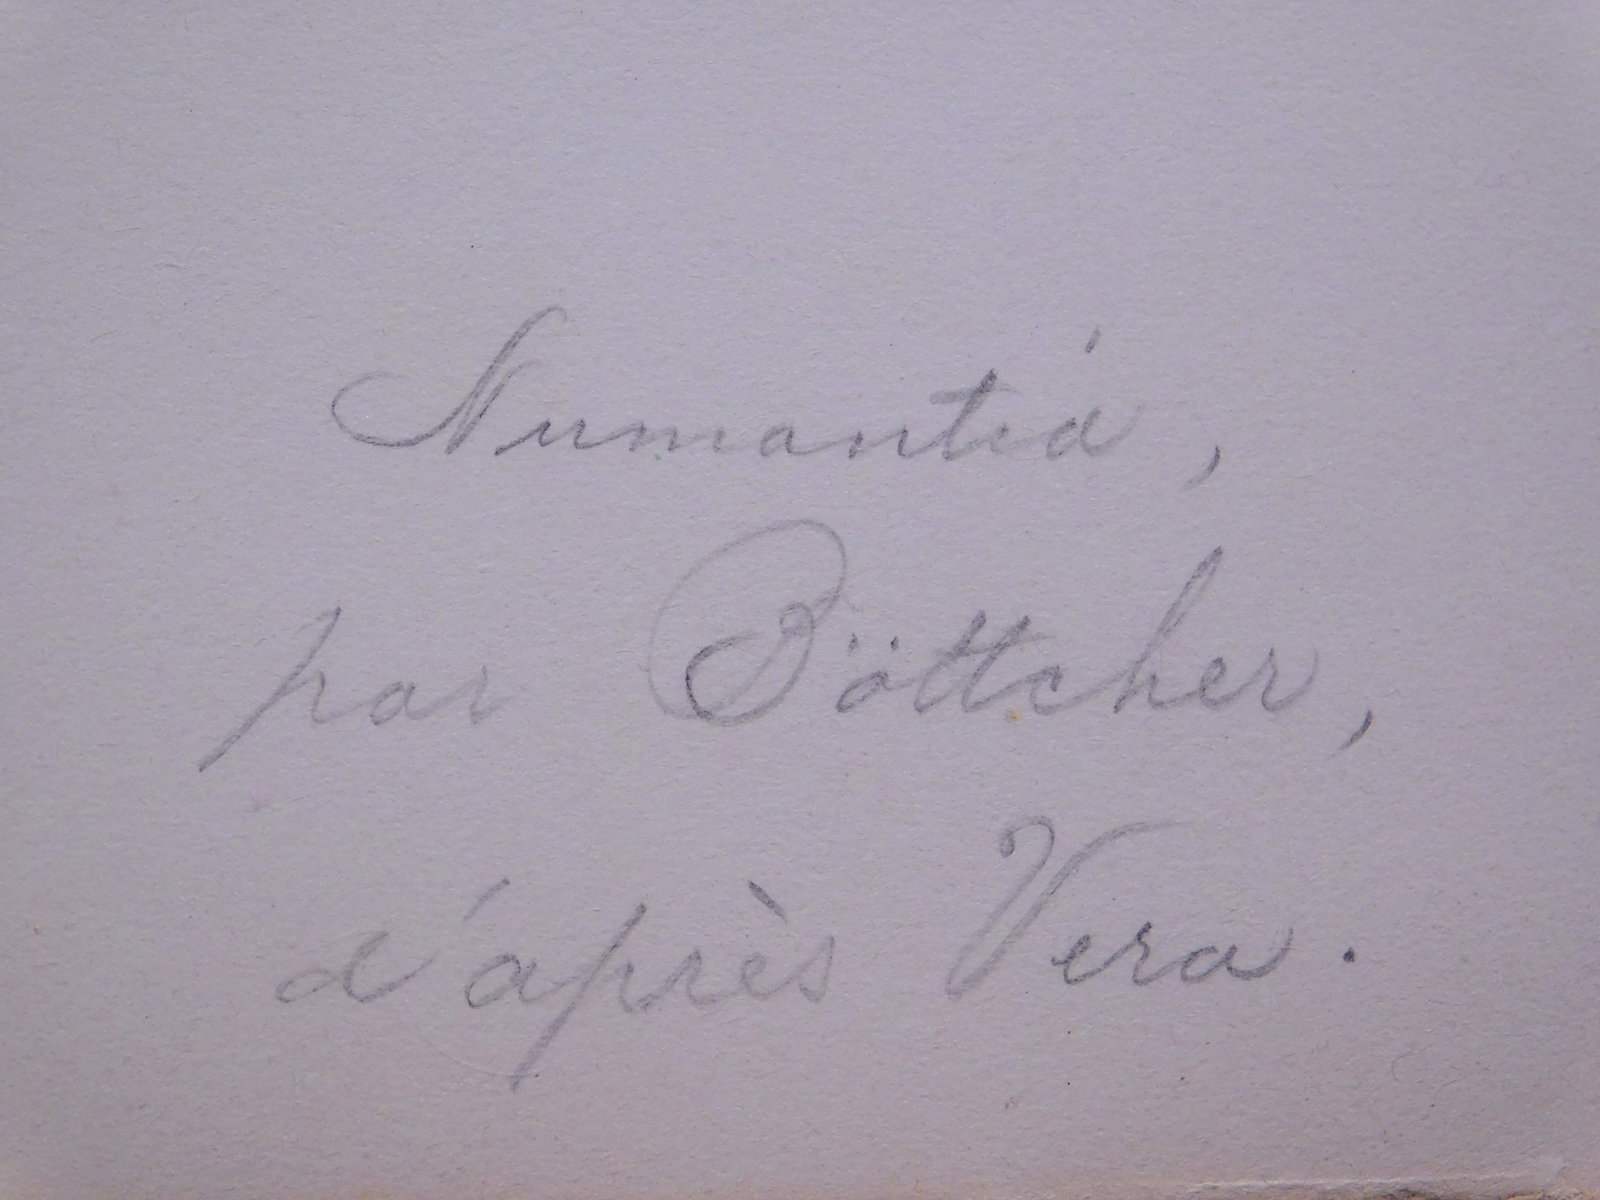 Numantia,
par Böttcher,
d'après Vera.